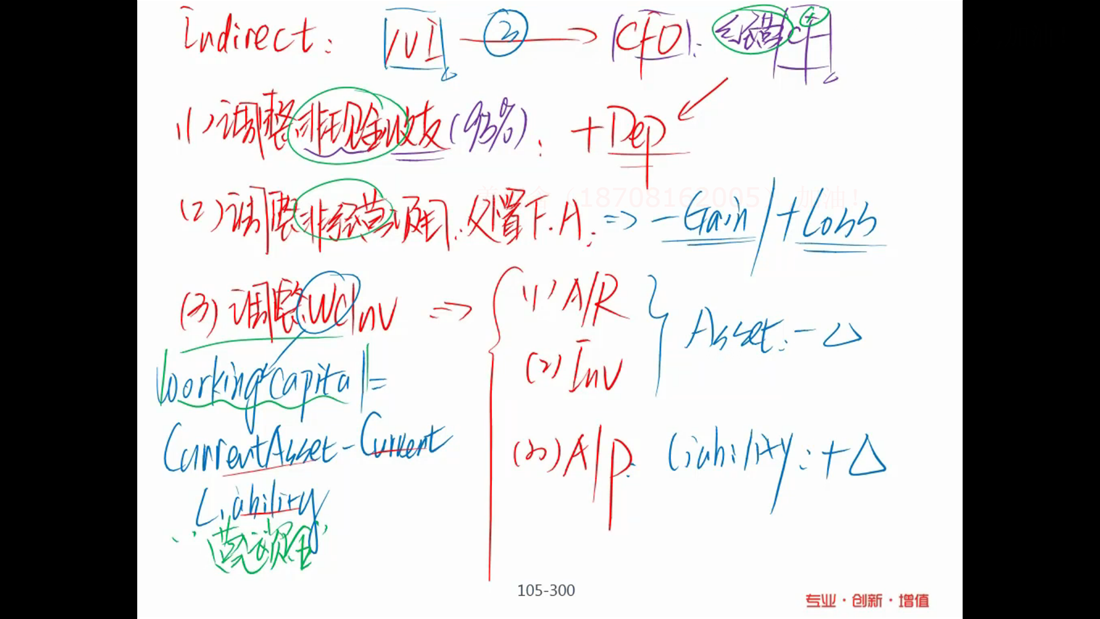 Indirect: NI ② → CFO: 经营 CF
(1) 调整非现金收支(95%): +Dep
(2) 调整非经营项目:处置F.A: ⇒ -Gain/+Loss
(3) 调整WCInv ⇒ (1) A/R
(2) Inv
Asset: -△
Working capital =
Current Asset - Current
Liability
"营运资金"
(3) A/P: Liability: +△
105-300
专业·创新·增值